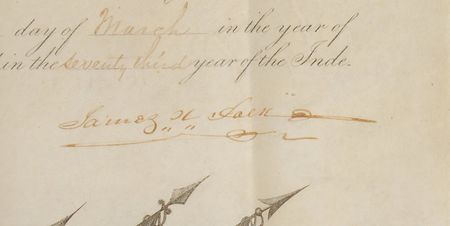 day of March in the year of
in the seventy third year of the Inde-
James K Polk